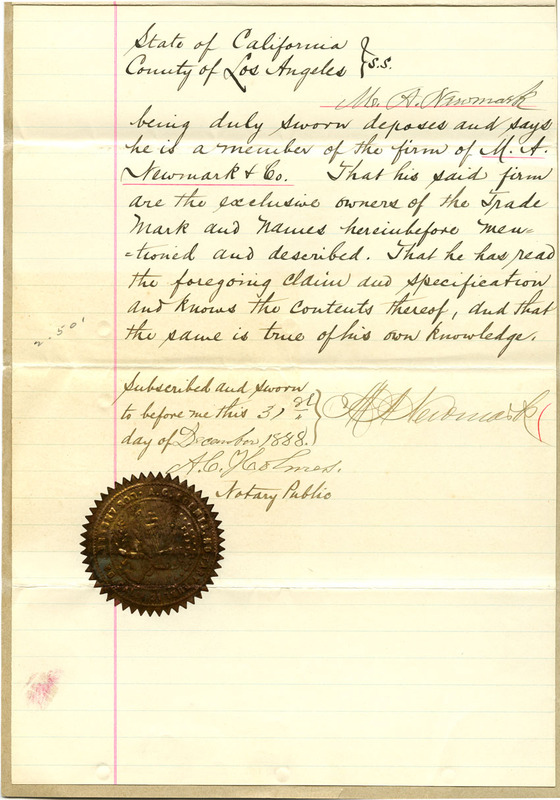 State of California
County of Los Angeles } S.S.
M. A. Newmark
being duly sworn deposes and says
he is a member of the firm of M. A.
Newmark & Co. That his said firm
are the exclusive owners of the Trade
Mark and Names hereinbefore men=
=tioned and described. That he has read
the foregoing claim and specification
and knows the contents thereof, and that
the same is true of his own knowledge.
2.50
Subscribed and sworn
to before me this 31st
day of December 1888.
M A Newmark
A. C. Holmes.
Notary Public